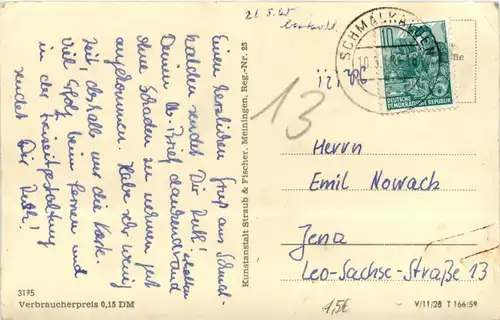 21.5.60
Einen herzlichen Gruß aus Schmal-
kalden sendet Dir Ruth! erhalten
Deinen lb. Brief dankend und
ohne Schaden zu nehmen gut
angekommen. Habe sehr wenig
Zeit, deshalb nur die Karte.
Viel Spaß beim Lernen und
in der Freizeitgestaltung
sendet Dir Ruth!
3175
Verbraucherpreis 0,15 DM
Kunstanstalt Straub & Fischer, Meiningen, Reg.-Nr. 23
SCHMALKALDEN
10
DEUTSCHE
DEMOKRATISCHE REPUBLIK
13
Herrn
Emil Nowack
Jena
Leo-Sachse-Straße 13
1,5€
V/11/28 T 166/59